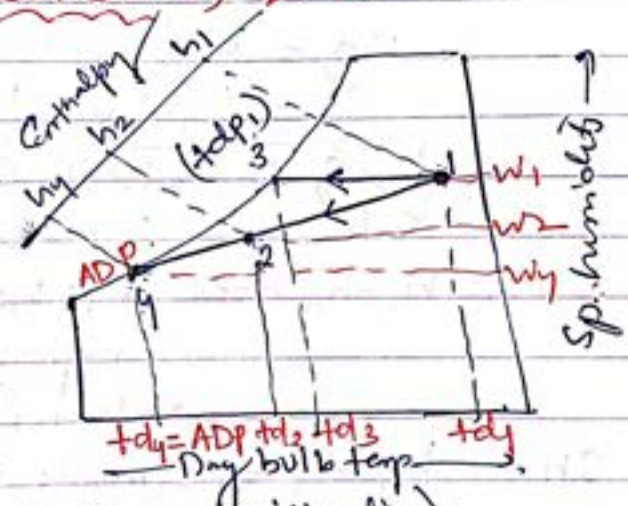 Enthalpy
h1
h2
h4
(tdp1)
3
1
W1
W2
W4
Sp. humidity →
ADP
2
4
td4 = ADP td2 td3 td1
Dry bulb temp